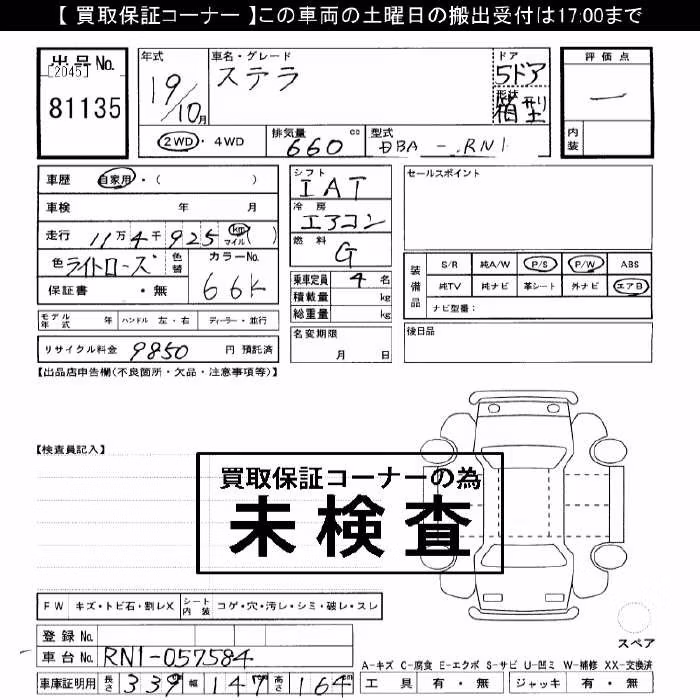 【 買取保証コーナー 】この車両の土曜日の搬出受付は17:00まで
出品No.
[2045]
81135
年式
19/10月
車名・グレード
ステラ
ドア
5ドア
形状
箱型
評価点
―
内装
2WD ・ 4WD
排気量
660 cc
型式
DBA - RN1
車歴 自家用・( )
車検 年 月
走行 11万4千925 km マイル ( )
色 ライトローズ 色替
カラーNo.
66K
保証書 ・ 無
シフト
IAT
冷房
エアコン
燃料
G
乗車定員 4 名
積載量 kg
総重量 kg
セールスポイント
装備品
S/R 純A/W P/S P/W ABS
純TV 純ナビ 革シート 外ナビ エアB
ナビ型番:
モデル年式 年 ハンドル 左・右 ディーラー・並行
リサイクル料金 9850 円 預託済
名変期限
月 日
後日品
【出品店申告欄(不良箇所・欠品・注意事項等)】
【検査員記入】
買取保証コーナーの為
未検査
FW キズ・トビ石・割レX シート内装 コゲ・穴・汚レ・シミ・破レ・スレ
スペア
登録No.
車台No. RN1-057584
A-キズ C-腐食 E-エクボ S-サビ U-凹ミ W-補修 XX-交換済
車庫証明用 長さ 339 幅 147 高さ 164 cm
工具 有・無 ジャッキ 有・無